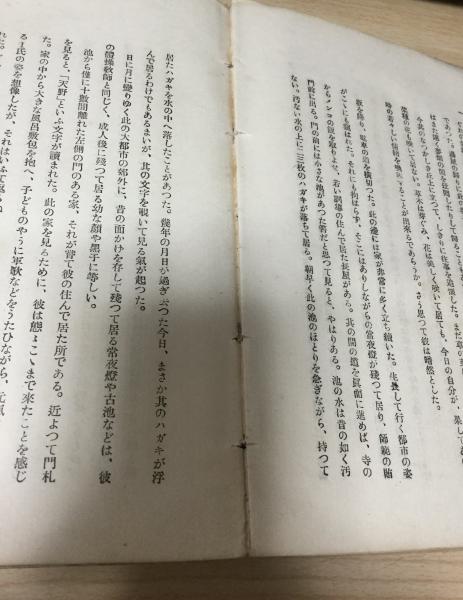 であつた。
今其のなつかしき丘上に立つて、しきりに往事を追懐した。まだ
菜種が此も咲いて居ない。草木は芽ぐみ、花は美しく咲いて居ても、今日の自分が、果して
時の若々しい情緒を
することが出来るであらうか。さう思つて彼は暗然とした。
坂を降り、電車の道を横切つた。此の邊には家が非常に多く立ち續いた。生長して行く都市の姿
がこゝにも窺はれた。それにも拘はらず、そこにはありしながらの常夜燈が残つて居り、師範の賄
からメンコの飯を取りよせ、若い同窓の住んで居た長屋がある。其の間の道を眞直に進めば、寺の
門前に出る。門の前には小さな池があつた筈だと思つて見ると、やはりある。池の水は昔の如く汚
ない。汚ない水の上に二三枚のハガキが落ちて居る。朝早く此の池のほとりを急ぎながら、持つて
居たハガキを水の中へ落したことがあつた。幾年の月日が過ぎ去つた今日、まさか其のハガキが浮
んで居るわけでもあるまいが、其の文字を覗いて見る氣が起つた。
日に月に變りゆく此の大都市の郊外に、昔の面かげを存して残つて居る常夜燈や古池などは、彼
の體操教師と同じく、成人後に残つて居る幼な顔や黒子に等しい。
池から僅に十數間離れた左側の門のある家、それが嘗て彼の住んで居た所である。近よつて門札
を見ると、「天野」といふ文字が讀まれた。此の家を見るために、彼は態々こゝまで來たことを感じ
た。家の中から大きな風呂敷包を抱へ、子どものやうに軍歌などをうたひながら、元氣
る
氏の姿を想像したが、それはいふ